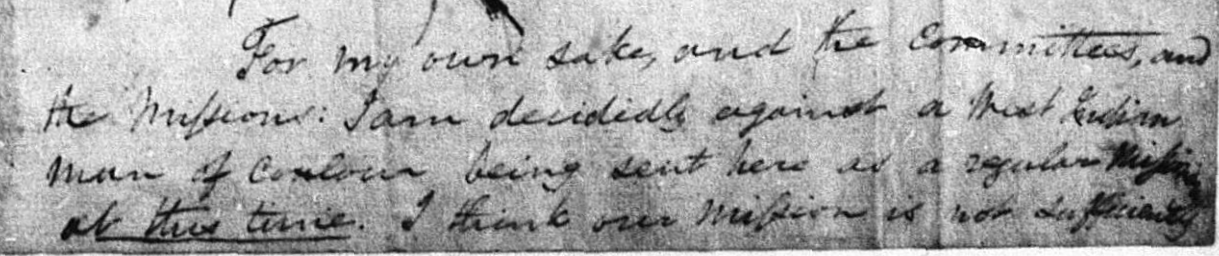 For my own sake, and the Committees, and
the Missions: I am decidedly against a West Indian
man of Coulour being sent here as a regular
at this time. I think our Mission is not sufficiently